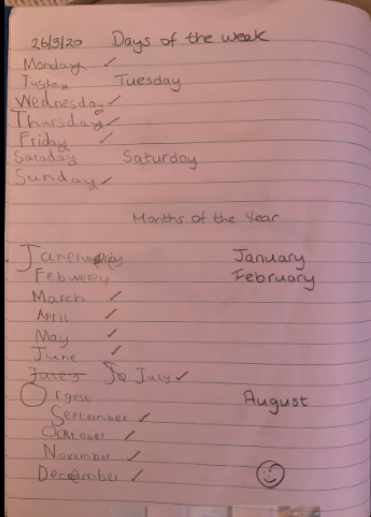 26/3/20 Days of the week
Monday ✓
Tusday Tuesday
Wednesday ✓
Thursday ✓
Friday ✓
Sataday Saturday
Sunday ✓
Months of the Year
January
Febuery February
March ✓
April ✓
May ✓
June ✓
July ✓
Orgest August
September ✓
Ocktober ✓
November ✓
December ✓